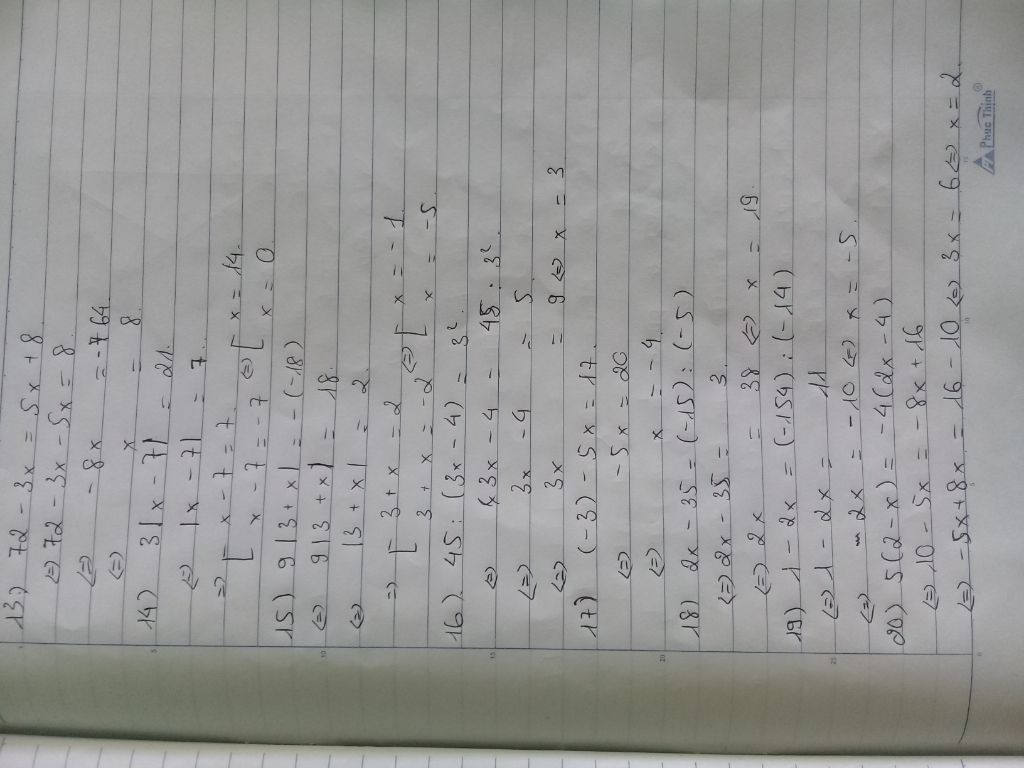 13) 72 - 3x = 5x + 8.
(=) 72 - 3x - 5x = 8.
(=) - 8x = - 64
(=) x = 8.
14) 3|x - 7| = 21.
(=) |x - 7| = 7.
=> [ x - 7 = 7. (=) [ x = 14.
x - 7 = - 7 x = 0
15) 9|3 + x| = - (-18)
(=) 9|3 + x| = 18.
(=) |3 + x| = 2
=> [ 3 + x = 2 (=) [ x = - 1
3 + x = - 2 x = - 5
16) 45 : (3x - 4) = 3².
(=) 3x - 4 = 45 : 3².
(=) 3x - 4 = 5
(=) 3x = 9 (=) x = 3
17) (-3) - 5x = 17.
(=) - 5x = 20
(=) x = - 4.
18) 2x - 35 = (-15) : (-5)
(=) 2x - 35 = 3.
(=) 2x = 38 (=) x = 19.
19) 1 - 2x = (-154) : (-14)
(=) 1 - 2x = 11
(=) - 2x = - 10 (=) x = - 5.
20) 5(2 - x) = - 4(2x - 4)
(=) 10 - 5x = - 8x + 16
(=) - 5x + 8x = 16 - 10 (=) 3x = 6 (=) x = 2.
Phuc Thinh ®